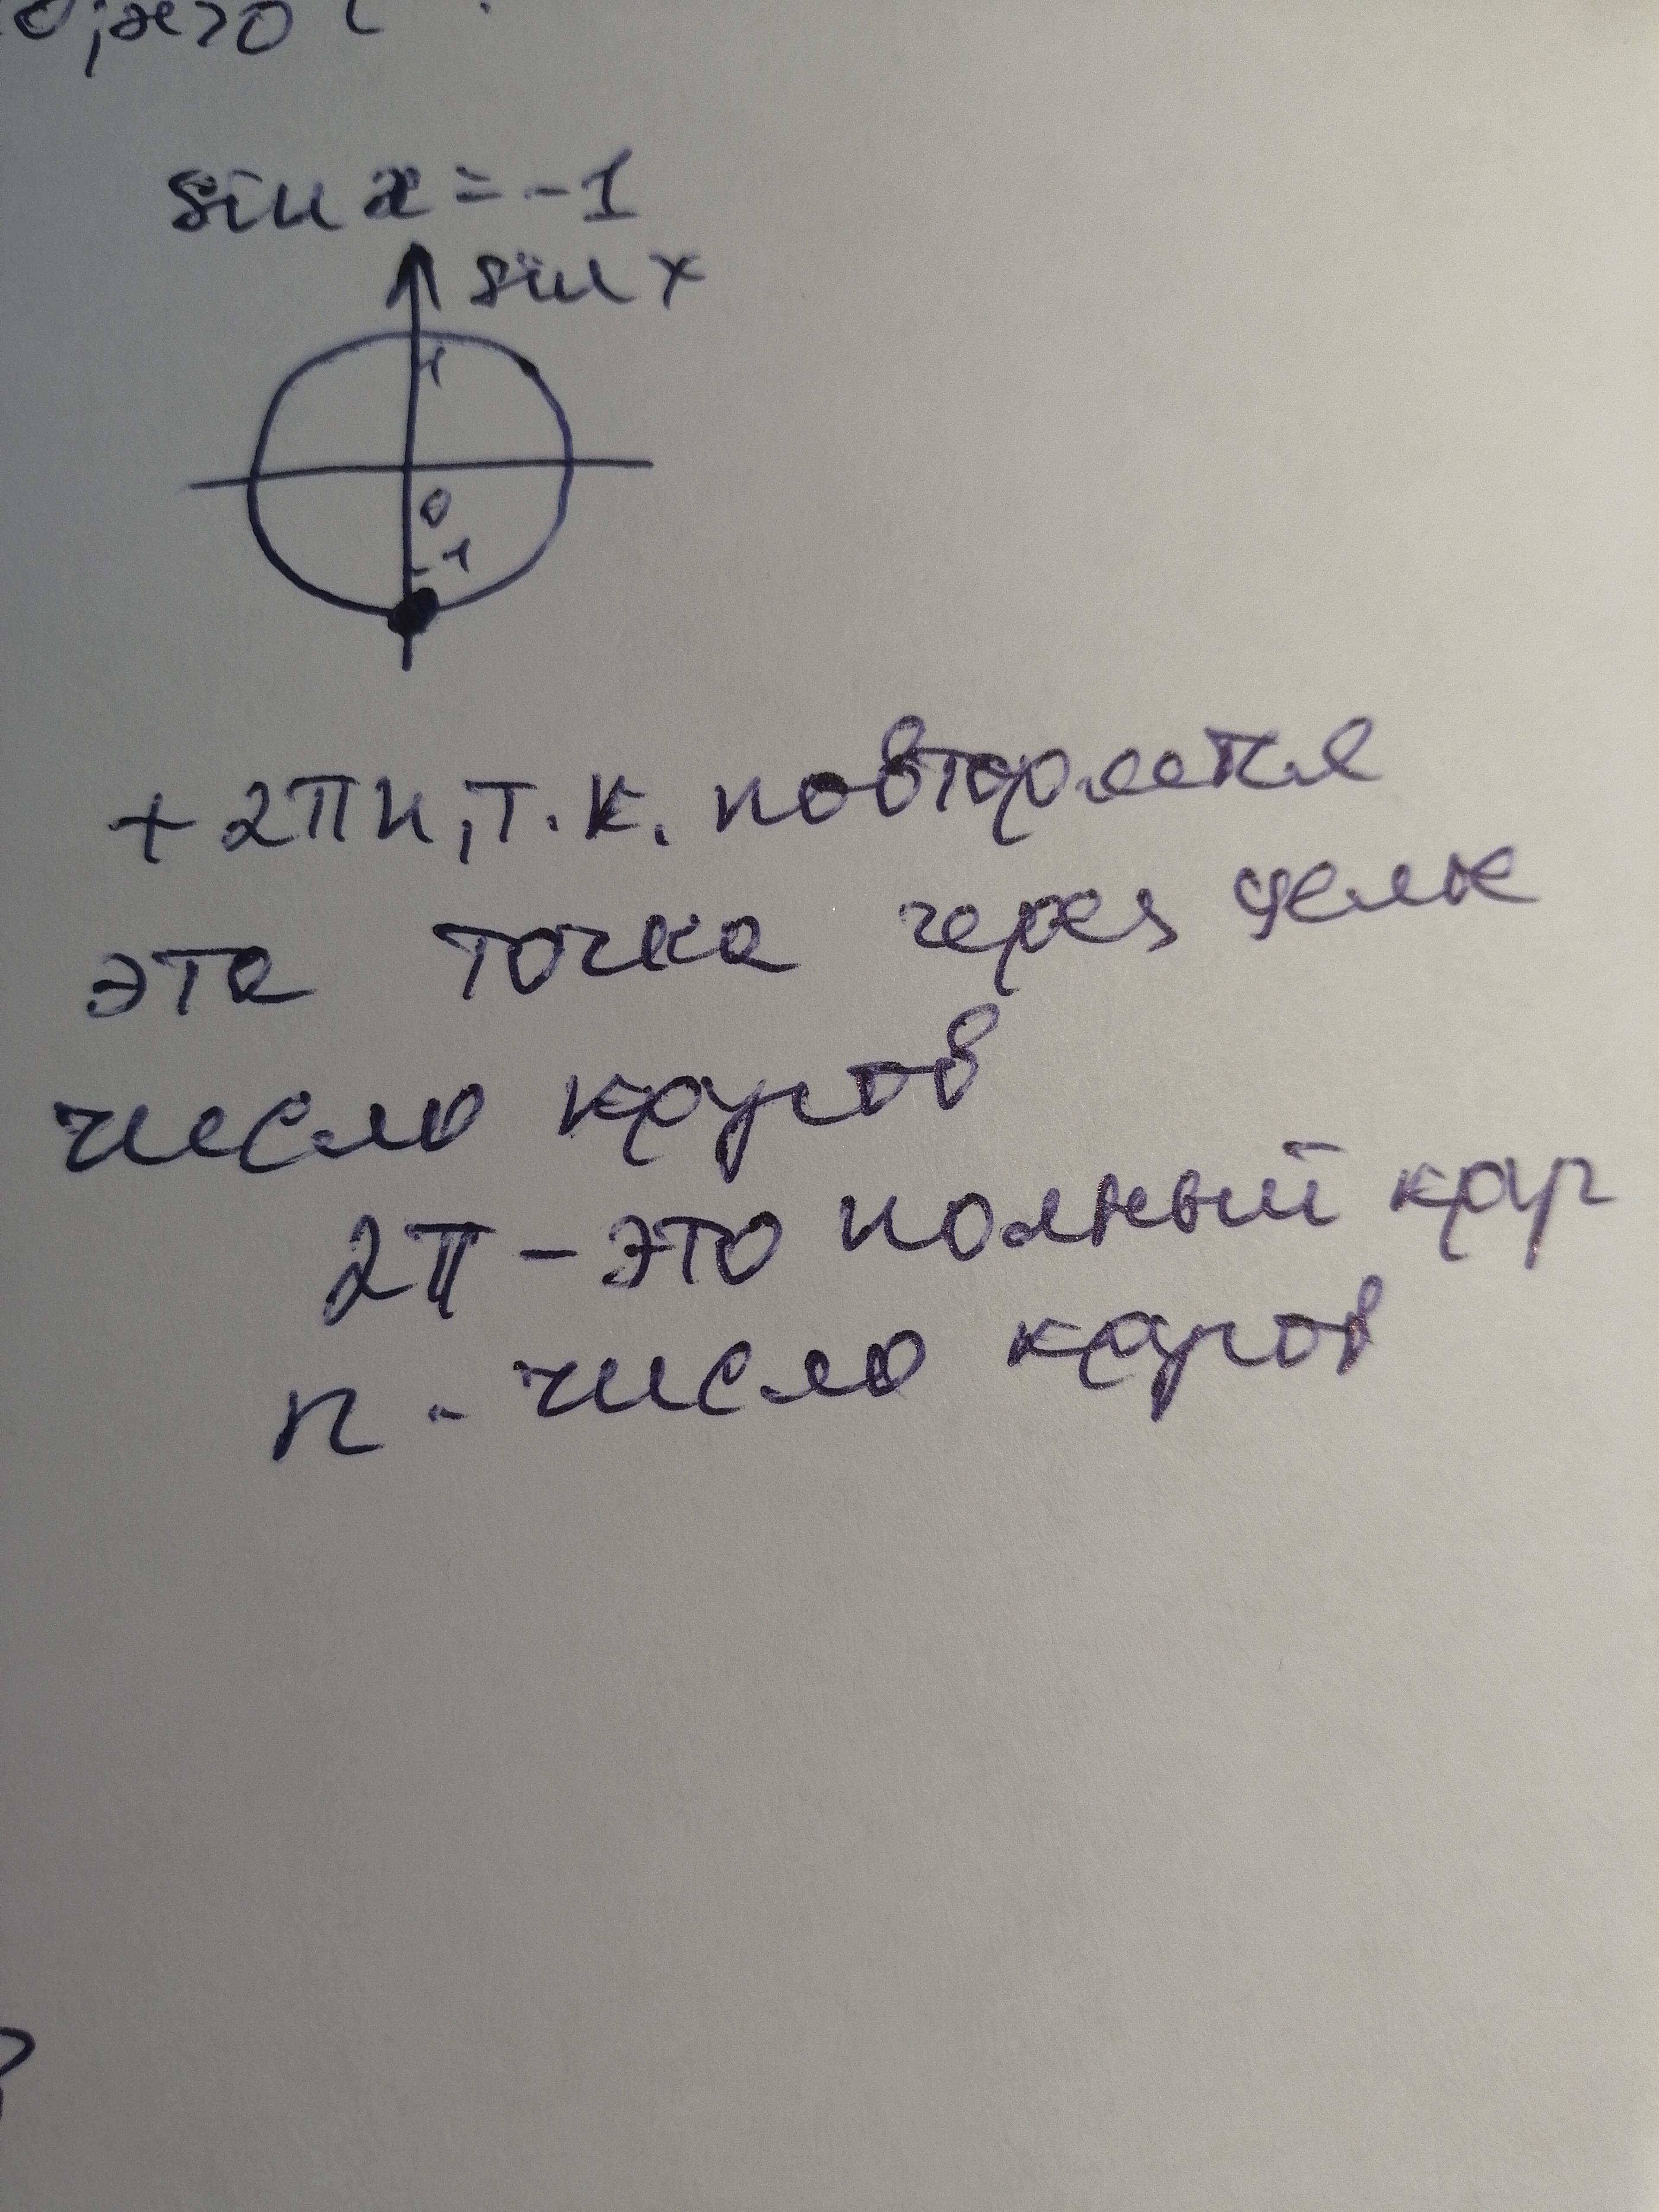 0; x>0
sin x = -1
sin x
1
0
-1
+ 2πn, т.к. повторяется
эта точка через целое
число кругов
2π - это полный круг
n - число кругов